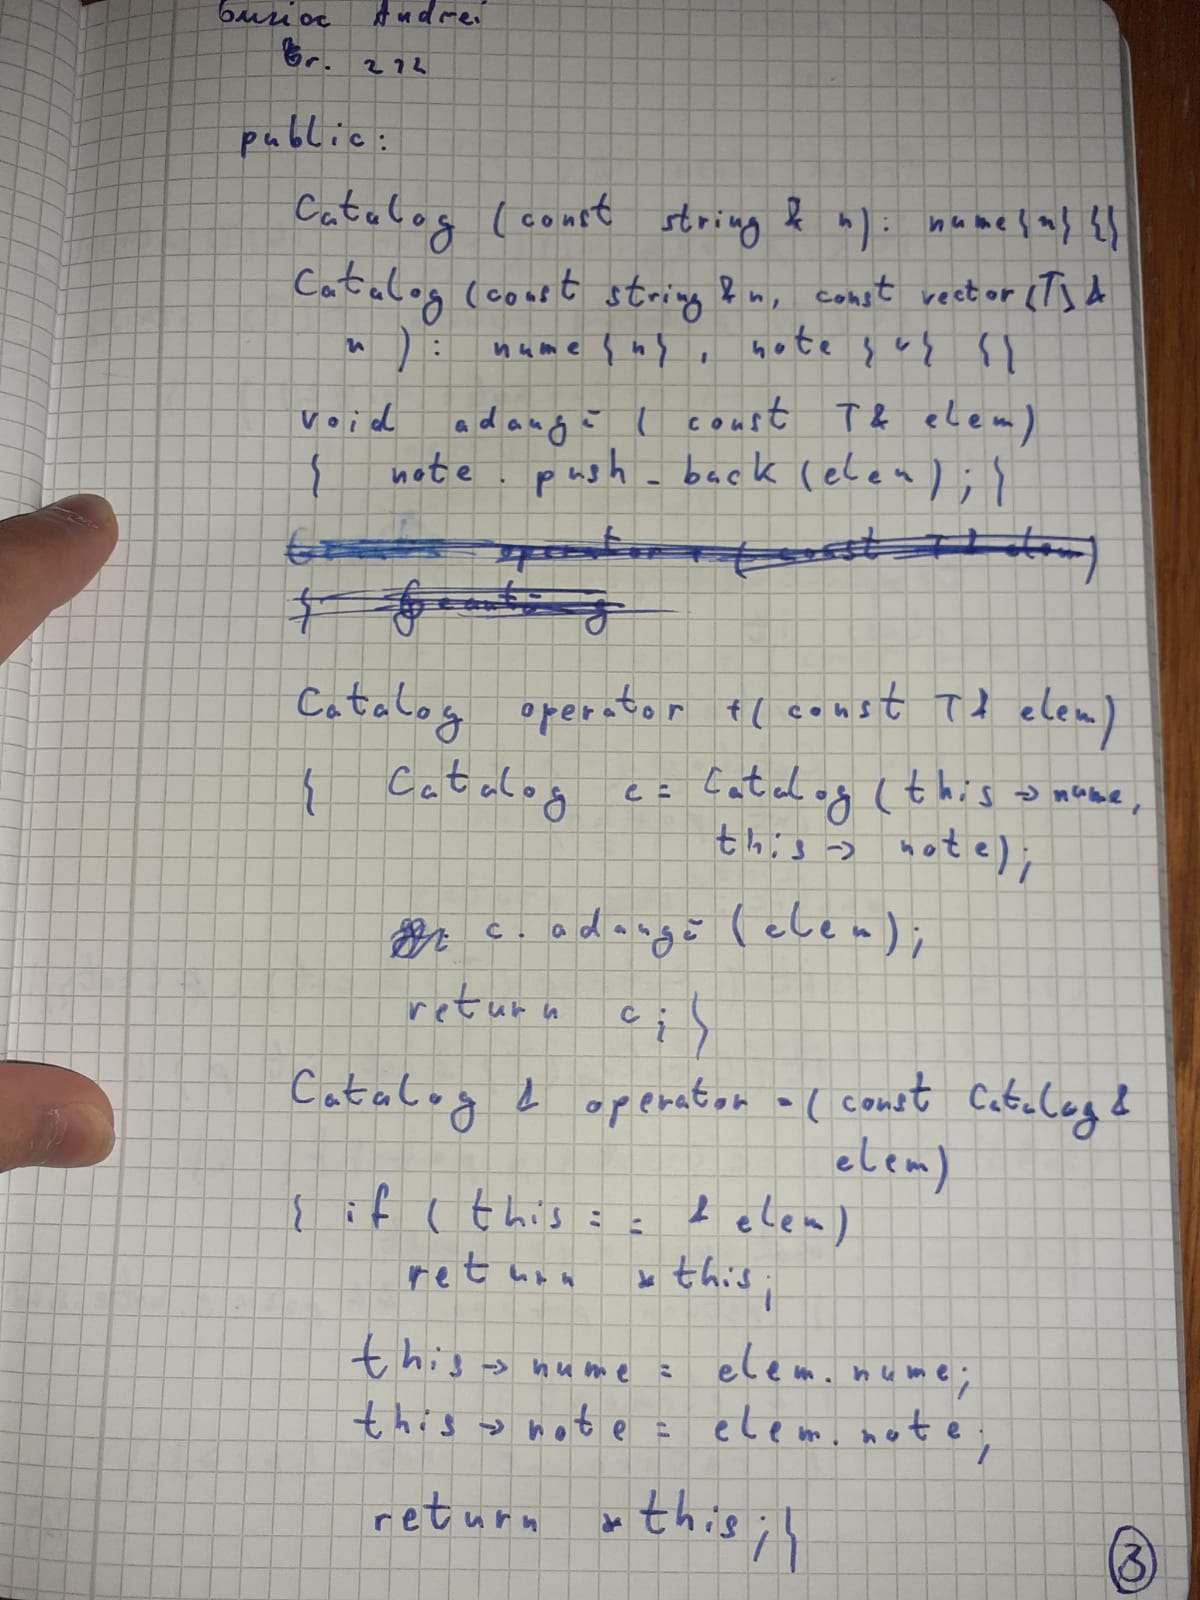 Andrei
Gr. 222
public:
Catalog (const string & n): nume{n} {}
Catalog (const string & n, const vector<T> &
n ) : nume {n}, note {v} {}
void adangă ( const T& elem)
{ note . push_back (elem) ; }
operator + ( const T & elem)
{
Catalog operator +( const T & elem)
{ Catalog c = Catalog ( this -> nume,
this -> note);
c. adangă (elem);
return c; }
Catalog & operator =( const Catalog &
elem)
{ if ( this == & elem)
return *this;
this -> nume = elem. nume;
this -> note = elem. note;
return *this; }
3